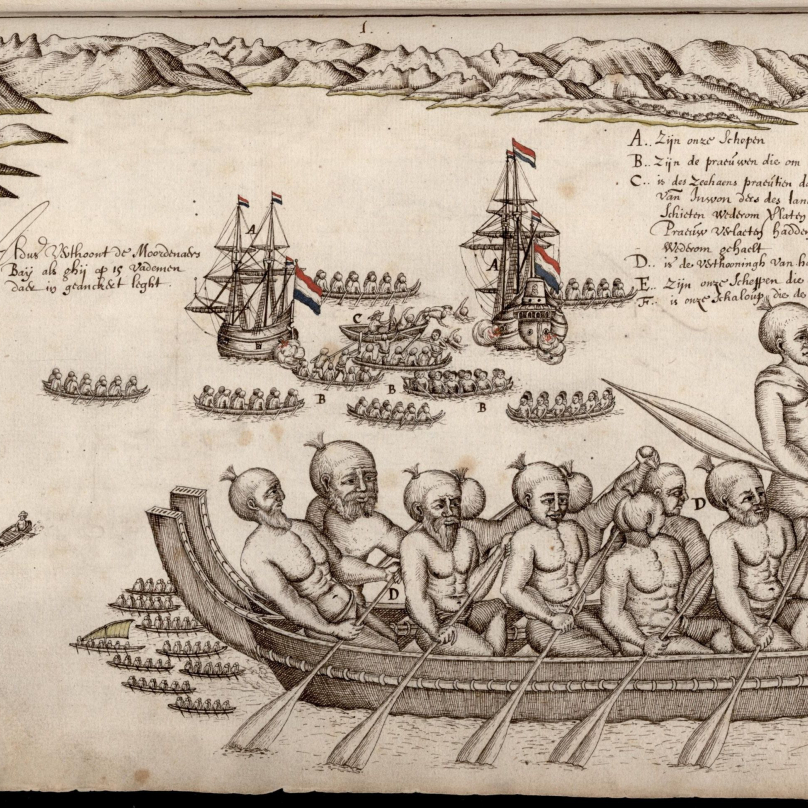 1.
Aldus Verthoont de Moordenaers
Baij als ghij op 15 Vademen
daer in geanckert leght
A.. Zijn onze Schepen
B.. Zijn de praeuwen die om
C.. is des Zeehaens praeutien d
van Inwon ders des lan
Schieten Wederom Vlaten
Praeuw Verlaeten hadden
Wederom gehaelt
D.. is de Verthooningh van
E.. Zijn onze Scheppen die
F.. is onze Schaloup die de
A
A
B
C
B
B
B
D
D